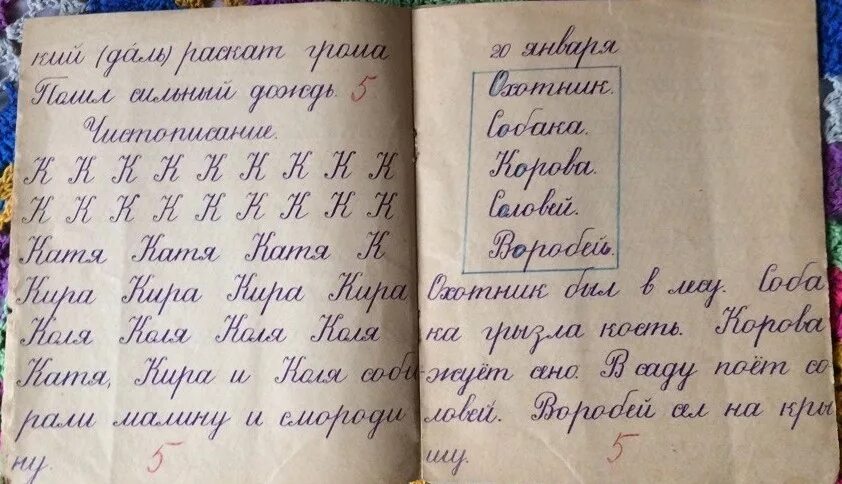 кий (да́ль) раскат грома
Пошл сильный дождь. 5
Чистописание.
К К К К К К К К К
К К К К К К К К К
Катя Катя Катя К
Кира Кира Кира Кира
Коля Коля Коля Коля
Катя, Кира и Коля соби
рали малину и смороди
ну. 5
20 января
Охотник.
Собака.
Корова.
Соловей.
Воробей.
Охотник был в лесу. Соба
ка грызла кость. Корова
жуёт сено. В саду поёт со
ловей. Воробей сел на кры
шу. 5